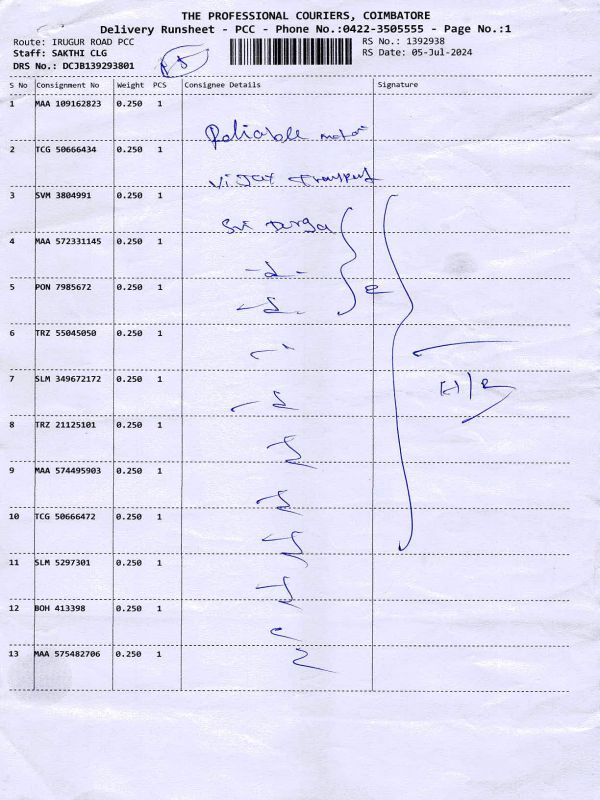 THE PROFESSIONAL COURIERS, COIMBATORE
Delivery Runsheet - PCC - Phone No.:0422-3505555 - Page No.:1
Route: IRUGUR ROAD PCC RS No.: 1392938
Staff: SAKTHI CLG RS Date: 05-Jul-2024
DRS No.: DCJB139293801
S No Consignment No Weight PCS Consignee Details Signature
1 MAA 109162823 0.250 1
Reliable motor
2 TCG 50666434 0.250 1
Vijay transport
3 SVM 3804991 0.250 1
Sri Durga
4 MAA 572331145 0.250 1
5 PON 7985672 0.250 1
6 TRZ 55045050 0.250 1
7 SLM 349672172 0.250 1
8 TRZ 21125101 0.250 1
9 MAA 574495903 0.250 1
10 TCG 50666472 0.250 1
11 SLM 5297301 0.250 1
12 BOH 413398 0.250 1
13 MAA 575482706 0.250 1